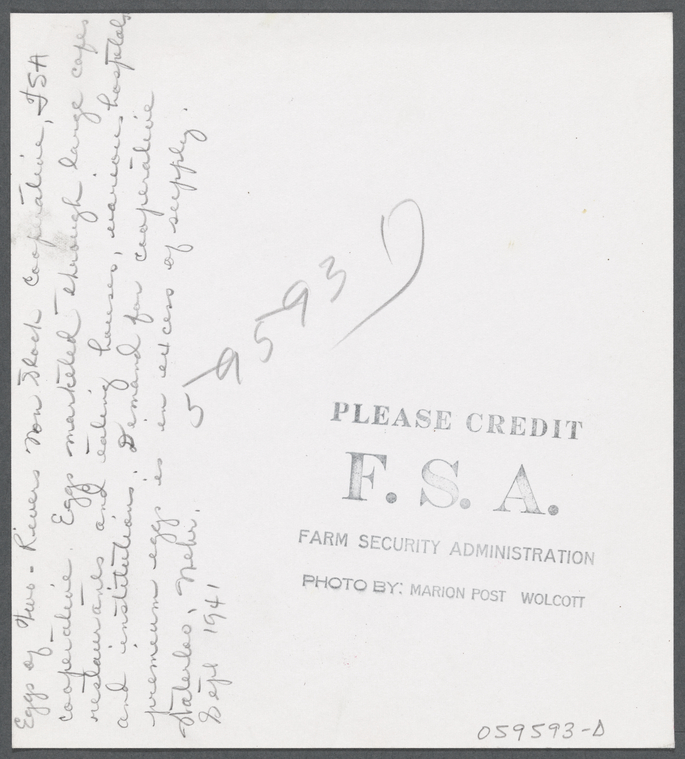 Eggs of Two-Rivers Non Stock Cooperative, FSA
cooperative. Eggs marketed through large cafes
restaurants and eating houses, various hospitals
and institutions. Demand for cooperative
premium eggs is in excess of supply.
Waterloo, Nebr.
Sept 1941
59593 D
PLEASE CREDIT
F. S. A.
FARM SECURITY ADMINISTRATION
PHOTO BY: MARION POST WOLCOTT
059593-D